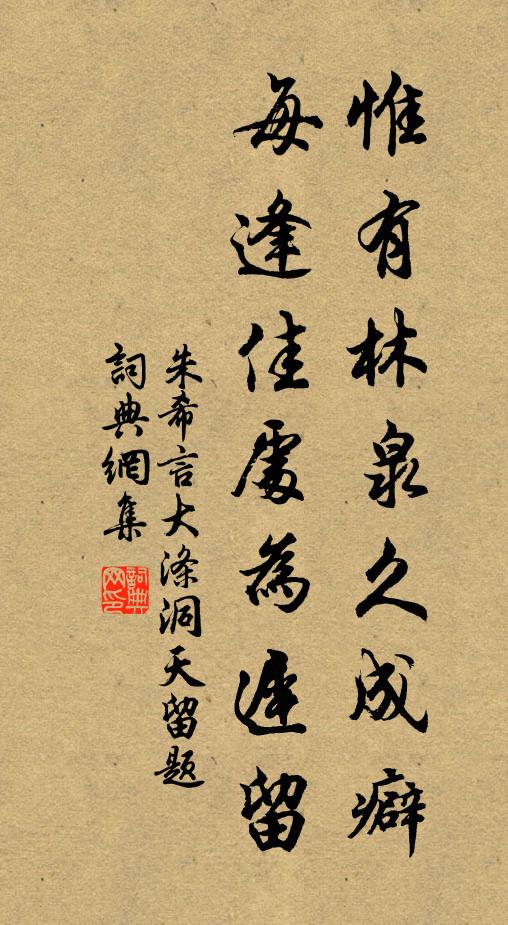 惟有林泉久成癖
每逢佳處為遲留
朱希言大滌洞天留題
詞典網集
詞典网印